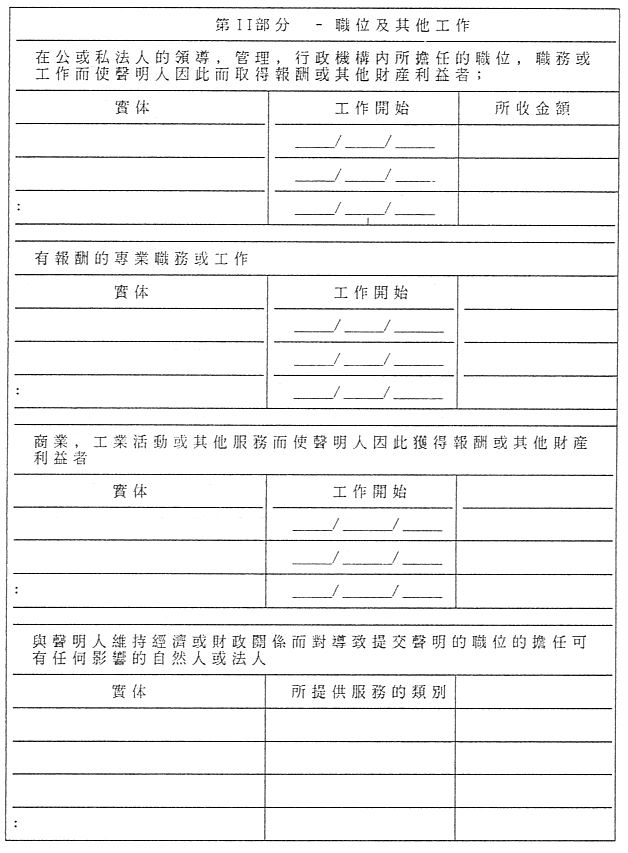 第II部分 - 職位及其他工作
在公或私法人的領導, 管理, 行政機構內所擔任的職位, 職務或
工作而使聲明人因此而取得報酬或其他財產利益者;
實体 工作開始 所收金額
____/____/____
____/____/____
: ____/____/____
有報酬的專業職務或工作
實体 工作開始
____/____/____
____/____/____
: ____/____/____
商業, 工業活動或其他服務而使聲明人因此獲得報酬或其他財產
利益者
實体 工作開始
____/____/____
____/____/____
: ____/____/____
與聲明人維持經濟或財政關係而對導致提交聲明的職位的擔任可
有任何影響的自然人或法人
實体 所提供服務的類別
: